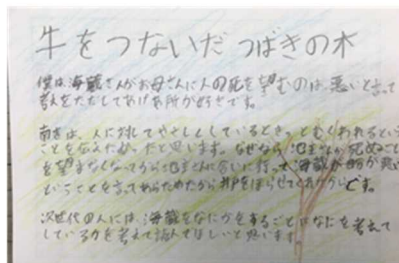 牛をつないだつばきの木
僕は、海蔵さんがお母さんに人の死を望むのは、悪いと言って
考えをただしてあげる所が好きです。
南吉は、人に対してやさしくしているときっとむくわれるという
ことを伝えたかったと思います。なぜなら、地主さんが死ぬこと
を望まなくなってから地主さんに会いに行って海蔵が自分が悪い
ということを言ってあらためたから井戸をほらせてくれたからです。
次世代の人には、海蔵をなにかをするごとになにを考えて
しているかを考えて読んでほしいと思います。